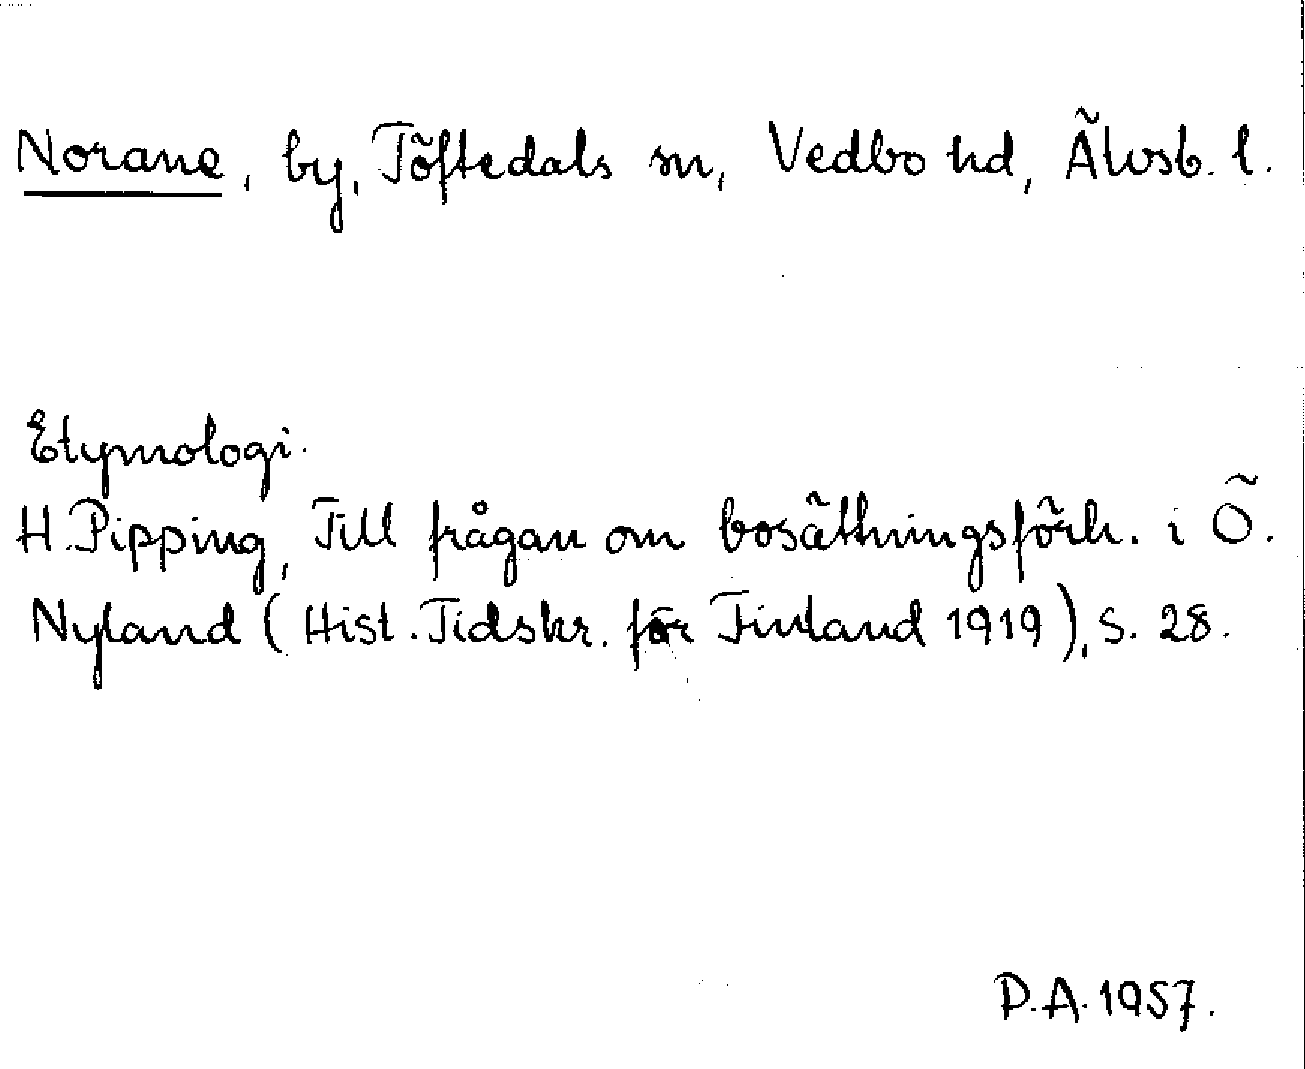 Norane, by, Töftedals sn, Vedbo hd, Älvsb. l.
Etymologi.
H. Pipping, Till frågan om bosättningsförh. i Ö.
Nyland (Hist. Tidskr. för Finland 1919), s. 28.
P.A. 1957.